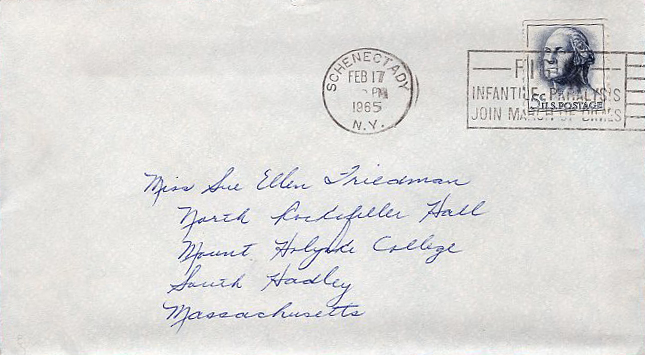 SCHENECTADY
FEB 17
PM
1965
N.Y.
INFANTILE PARALYSIS
JOIN MARCH OF DIMES
5c
U.S. POSTAGE
Miss Sue Ellen Friedman
North Rockefeller Hall
Mount Holyoke College
South Hadley
Massachusetts